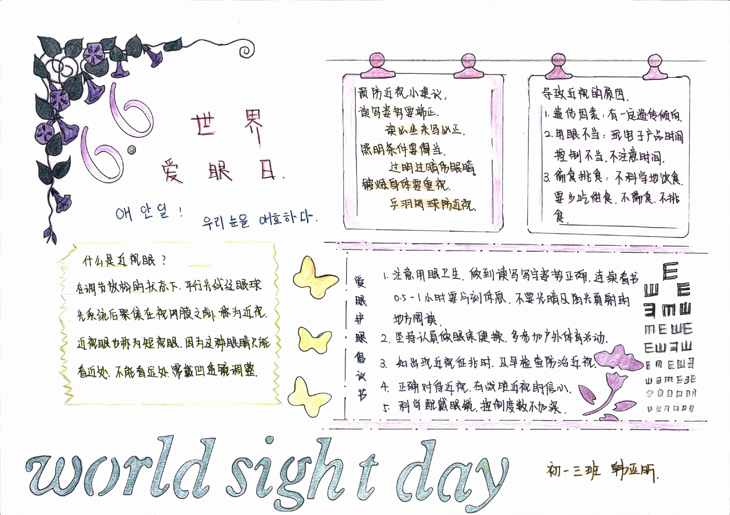 6.6
世界
爱眼日.
애 안일!
우리눈을 애호하다.
预防近视小建议.
读写姿势要端正.
读必坐来写必正.
照明条件要得当.
过明过暗伤眼睛.
锻炼身体要重视.
乒羽网球防近视.
导致近视的原因.
1. 遗传因素:有一定遗传倾向.
2. 用眼不当:玩电子产品时间
控制不当.不注意时间.
3. 偏食挑食:不科学地饮食.
要少吃甜食.不偏食.不挑
食.
什么是近视眼?
在调节放松的状态下.平行光线经眼球
光系统后聚焦在视网膜之前.称为近视.
近视眼也称为短视眼.因为这种眼睛只能
看近处.不能看远处.需戴凹透镜调整.
爱眼护眼倡议书
1. 注意用眼卫生.做到读写写字姿势正确.连续看书
0.5-1小时要马训休息.不要光晴及阳光直射的
地方阅读.
2. 坚持认真做眼保健操.多参加户外体育活动.
3. 如出现近视征兆时.及早检查防治近视.
4. 正确对待近视.有战胜近视的信心.
5. 科学配戴眼镜.控制度数不加深.
world sight day
初一三班